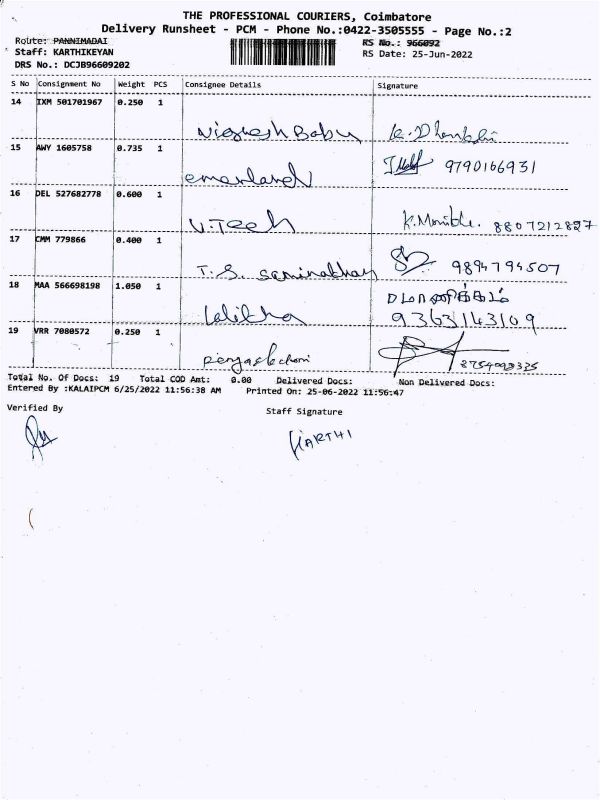 THE PROFESSIONAL COURIERS, Coimbatore
Delivery Runsheet - PCM - Phone No.:0422-3505555 - Page No.:2
Route: PANNIMADAI RS No.: 966092
Staff: KARTHIKEYAN RS Date: 25-Jun-2022
DRS No.: DCJB96609202
S No Consignment No Weight PCS Consignee Details Signature
14 IXM 501701967 0.250 1
Vignesh Babu
15 AWY 1605758 0.735 1
emerland 9790166931
16 DEL 527682778 0.600 1
V.Tech 8807212827
17 CMM 779866 0.400 1
T. S. 9894794507
18 MAA 566698198 1.050 1
Lalitha 9363143109
19 VRR 7080572 0.250 1
Total No. Of Docs: 19 Total COD Amt: 0.00 Delivered Docs: Non Delivered Docs:
Entered By :KALAIPCM 6/25/2022 11:56:38 AM Printed On: 25-06-2022 11:56:47
Verified By Staff Signature
KARTHI